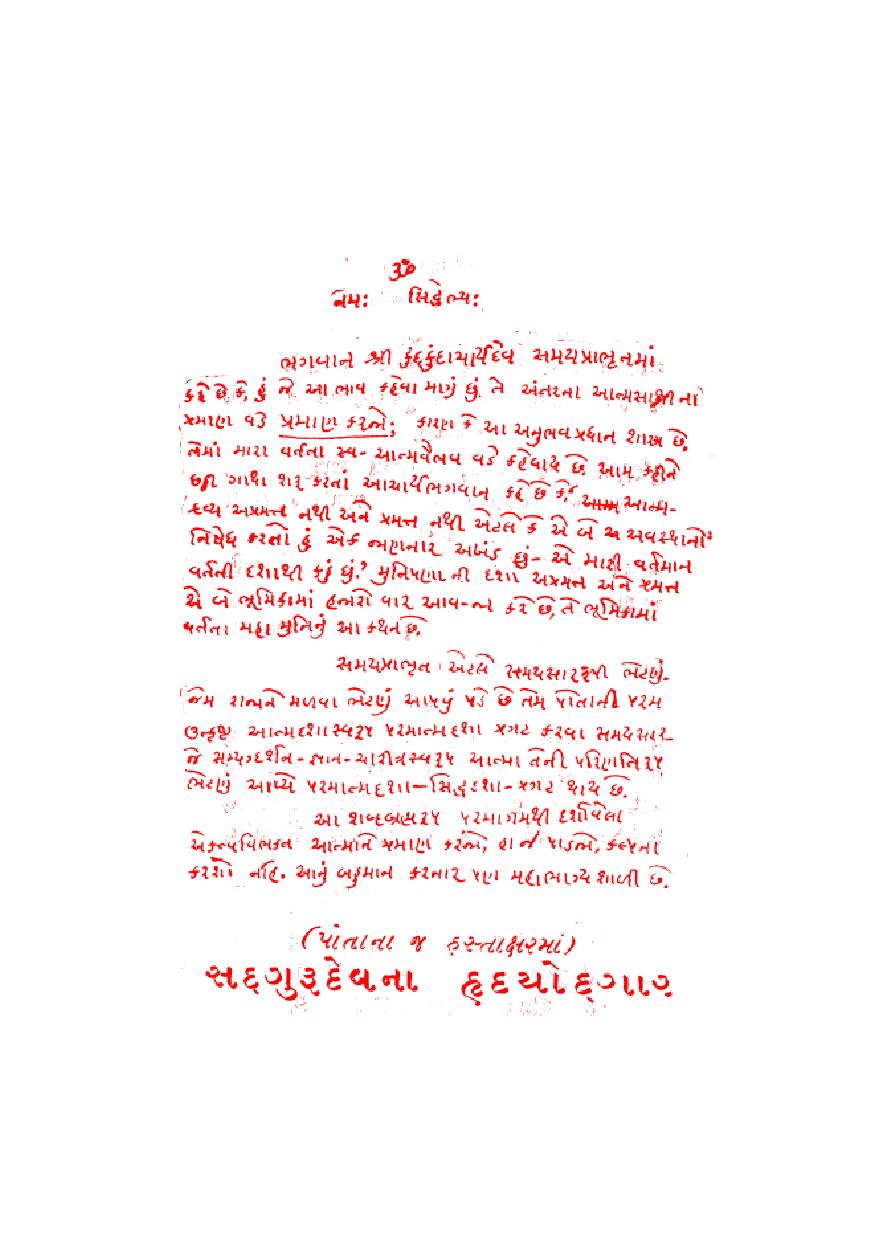 ૐ
નમ: સિદ્ધેભ્ય:
ભગવાન શ્રી કુંદકુંદાચાર્યદેવ સમયપ્રાભૃતમાં
કહે છે કે, હું જે આ ભાવ કહેવા માગું છું તે અંતરના આત્મસાક્ષીના
પ્રમાણ વડે પ્રમાણ કરજો; કારણ કે આ અનુભવપ્રધાન શાસ્ત્ર છે,
તેમાં મારા વર્તતા સ્વ-આત્મવૈભવ વડે કહેવાય છે. આમ કહીને
છઠ્ઠી ગાથા શરૂ કરતાં આચાર્યભગવાન કહે છે કે, "આત્મ-
દ્રવ્ય અપ્રમત્ત નથી અને પ્રમત્ત નથી એટલે કે એ બે અવસ્થાનો
નિષેધ કરતો હું એક જાણનાર અખંડ છું- એ મારી વર્તમાન
વર્તતી દશાથી કહું છું." મુનિપણાની દશા અપ્રમત્ત અને પ્રમત્ત
એ બે ભૂમિકામાં હજારો વાર આવ-જા કરે છે, તે ભૂમિકામાં
વર્તતા મહા મુનિનું આ કથન છે.
સમયપ્રાભૃત એટલે સમયસારરૂપી ભેટણું.
જેમ રાજાને મળવા ભેટણું આપવું પડે છે તેમ પોતાની પરમ
ઉત્કૃષ્ટ આત્મદશાસ્વરૂપ પરમાત્મદશા પ્રગટ કરવા સમયસાર-
જે સમ્યગ્દર્શન-જ્ઞાન-ચારીત્રસ્વરૂપ આત્મા તેની પરિણતિરૂપ
ભેટણું આપ્યે પરમાત્મદશા-સિદ્ધદશા-પ્રગટ થાય છે.
આ શબ્દબ્રહ્મરૂપ પરમાગમથી દર્શાવેલા
એકત્વવિભક્ત આત્માને પ્રમાણ કરજો, હા જ પાડજો, કલ્પના
કરશો નહિ. આનું બહુમાન કરનાર પણ મહાભાગ્યશાળી છે.
(પોતાના જ હસ્તાક્ષરમાં)
સદ્દગુરૂદેવના હૃદયોદ્દગાર